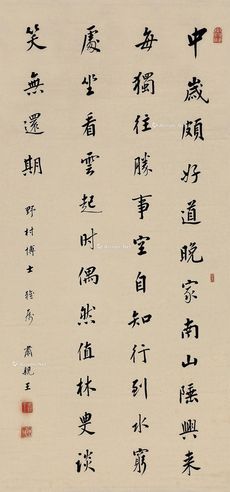 中歲頗好道晚家南山陲興来
每獨往勝事空自知行到水窮
處坐看雲起时偶然值林叟談
笑無還期
野村博士 雅属
肅親王